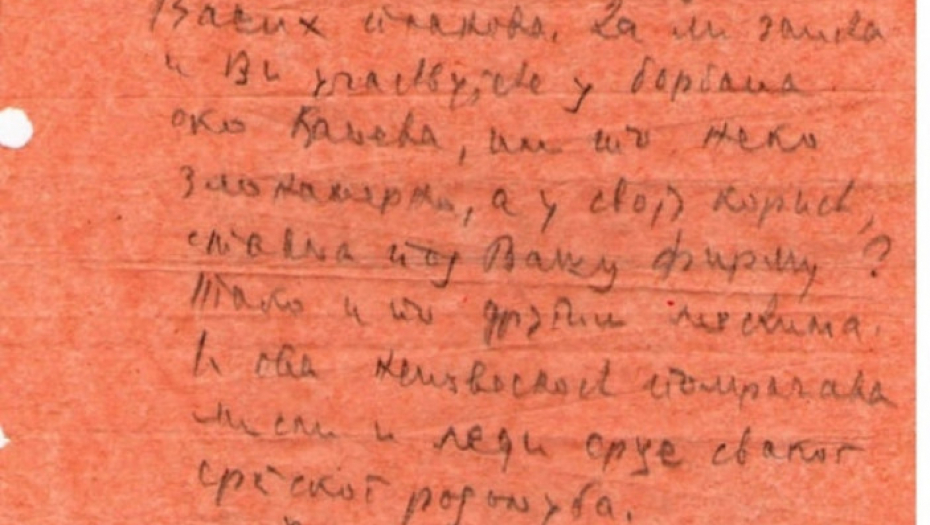 Ваших планова. Да ли заиста
и Ви учествујете у борбама
око Ваљева, или то неко
злонамерно, а у своју корист,
ставља под Вашу фирму?
Тако и по другим местима.
И ова неизвесност помрачава
мисли и леди срце сваког
српског родољуба.